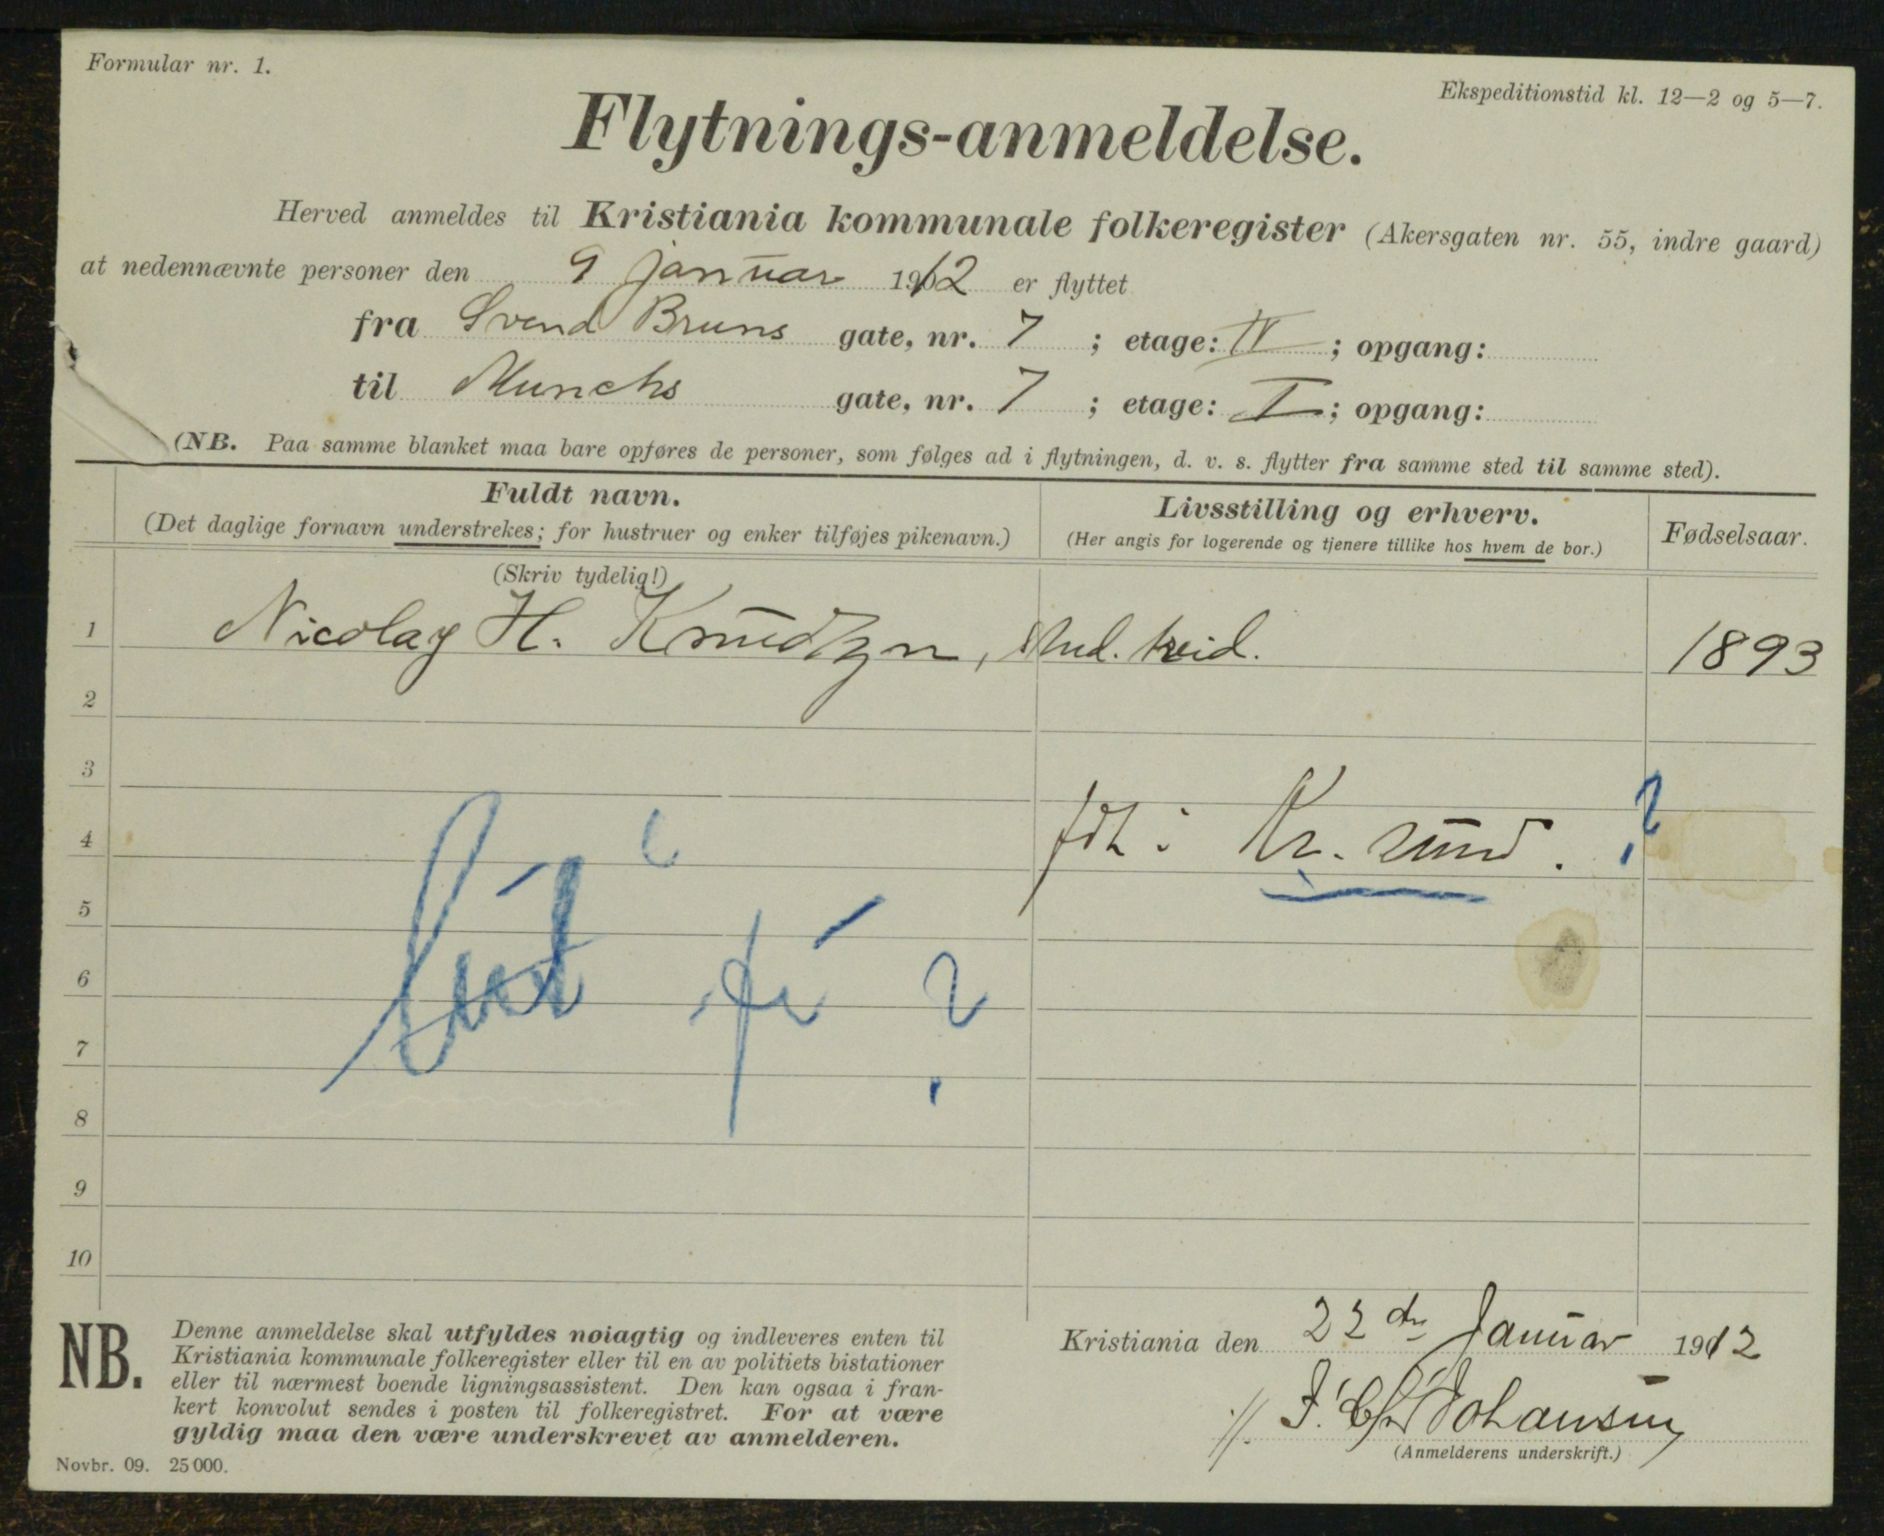 Formular nr. 1.
Ekspeditionstid kl. 12—2 og 5—7.
Flytnings-anmeldelse.
Herved anmeldes til Kristiania kommunale folkeregister (Akersgaten nr. 55, indre gaard)
at nedennævnte personer den 9 januar 1912 er flyttet
fra Svend Bruns gate, nr. 7 ; etage: IV ; opgang:
til Munchs gate, nr. 7 ; etage: I ; opgang:
(NB. Paa samme blanket maa bare opføres de personer, som følges ad i flytningen, d. v. s. flytter fra samme sted til samme sted).
Fuldt navn. Livsstilling og erhverv. Fødselsaar.
(Det daglige fornavn understrekes; for hustruer og enker tilføjes pikenavn.) (Her angis for logerende og tjenere tillike hos hvem de bor.)
(Skriv tydelig!)
1 Nicolay H. Knudtzon, stud. 1893
2
3
4 fdt i Kr. sund. ?
5
6 ?
7
8
9
10
NB. Denne anmeldelse skal utfyldes nøiagtig og indleveres enten til
Kristiania kommunale folkeregister eller til en av politiets bistationer
eller til nærmest boende ligningsassistent. Den kan ogsaa i fran-
kert konvolut sendes i posten til folkeregistret. For at være
gyldig maa den være underskrevet av anmelderen.
Kristiania den 22 den Januar 1912
Johansen
(Anmelderens underskrift.)
Novbr. 09. 25 000.